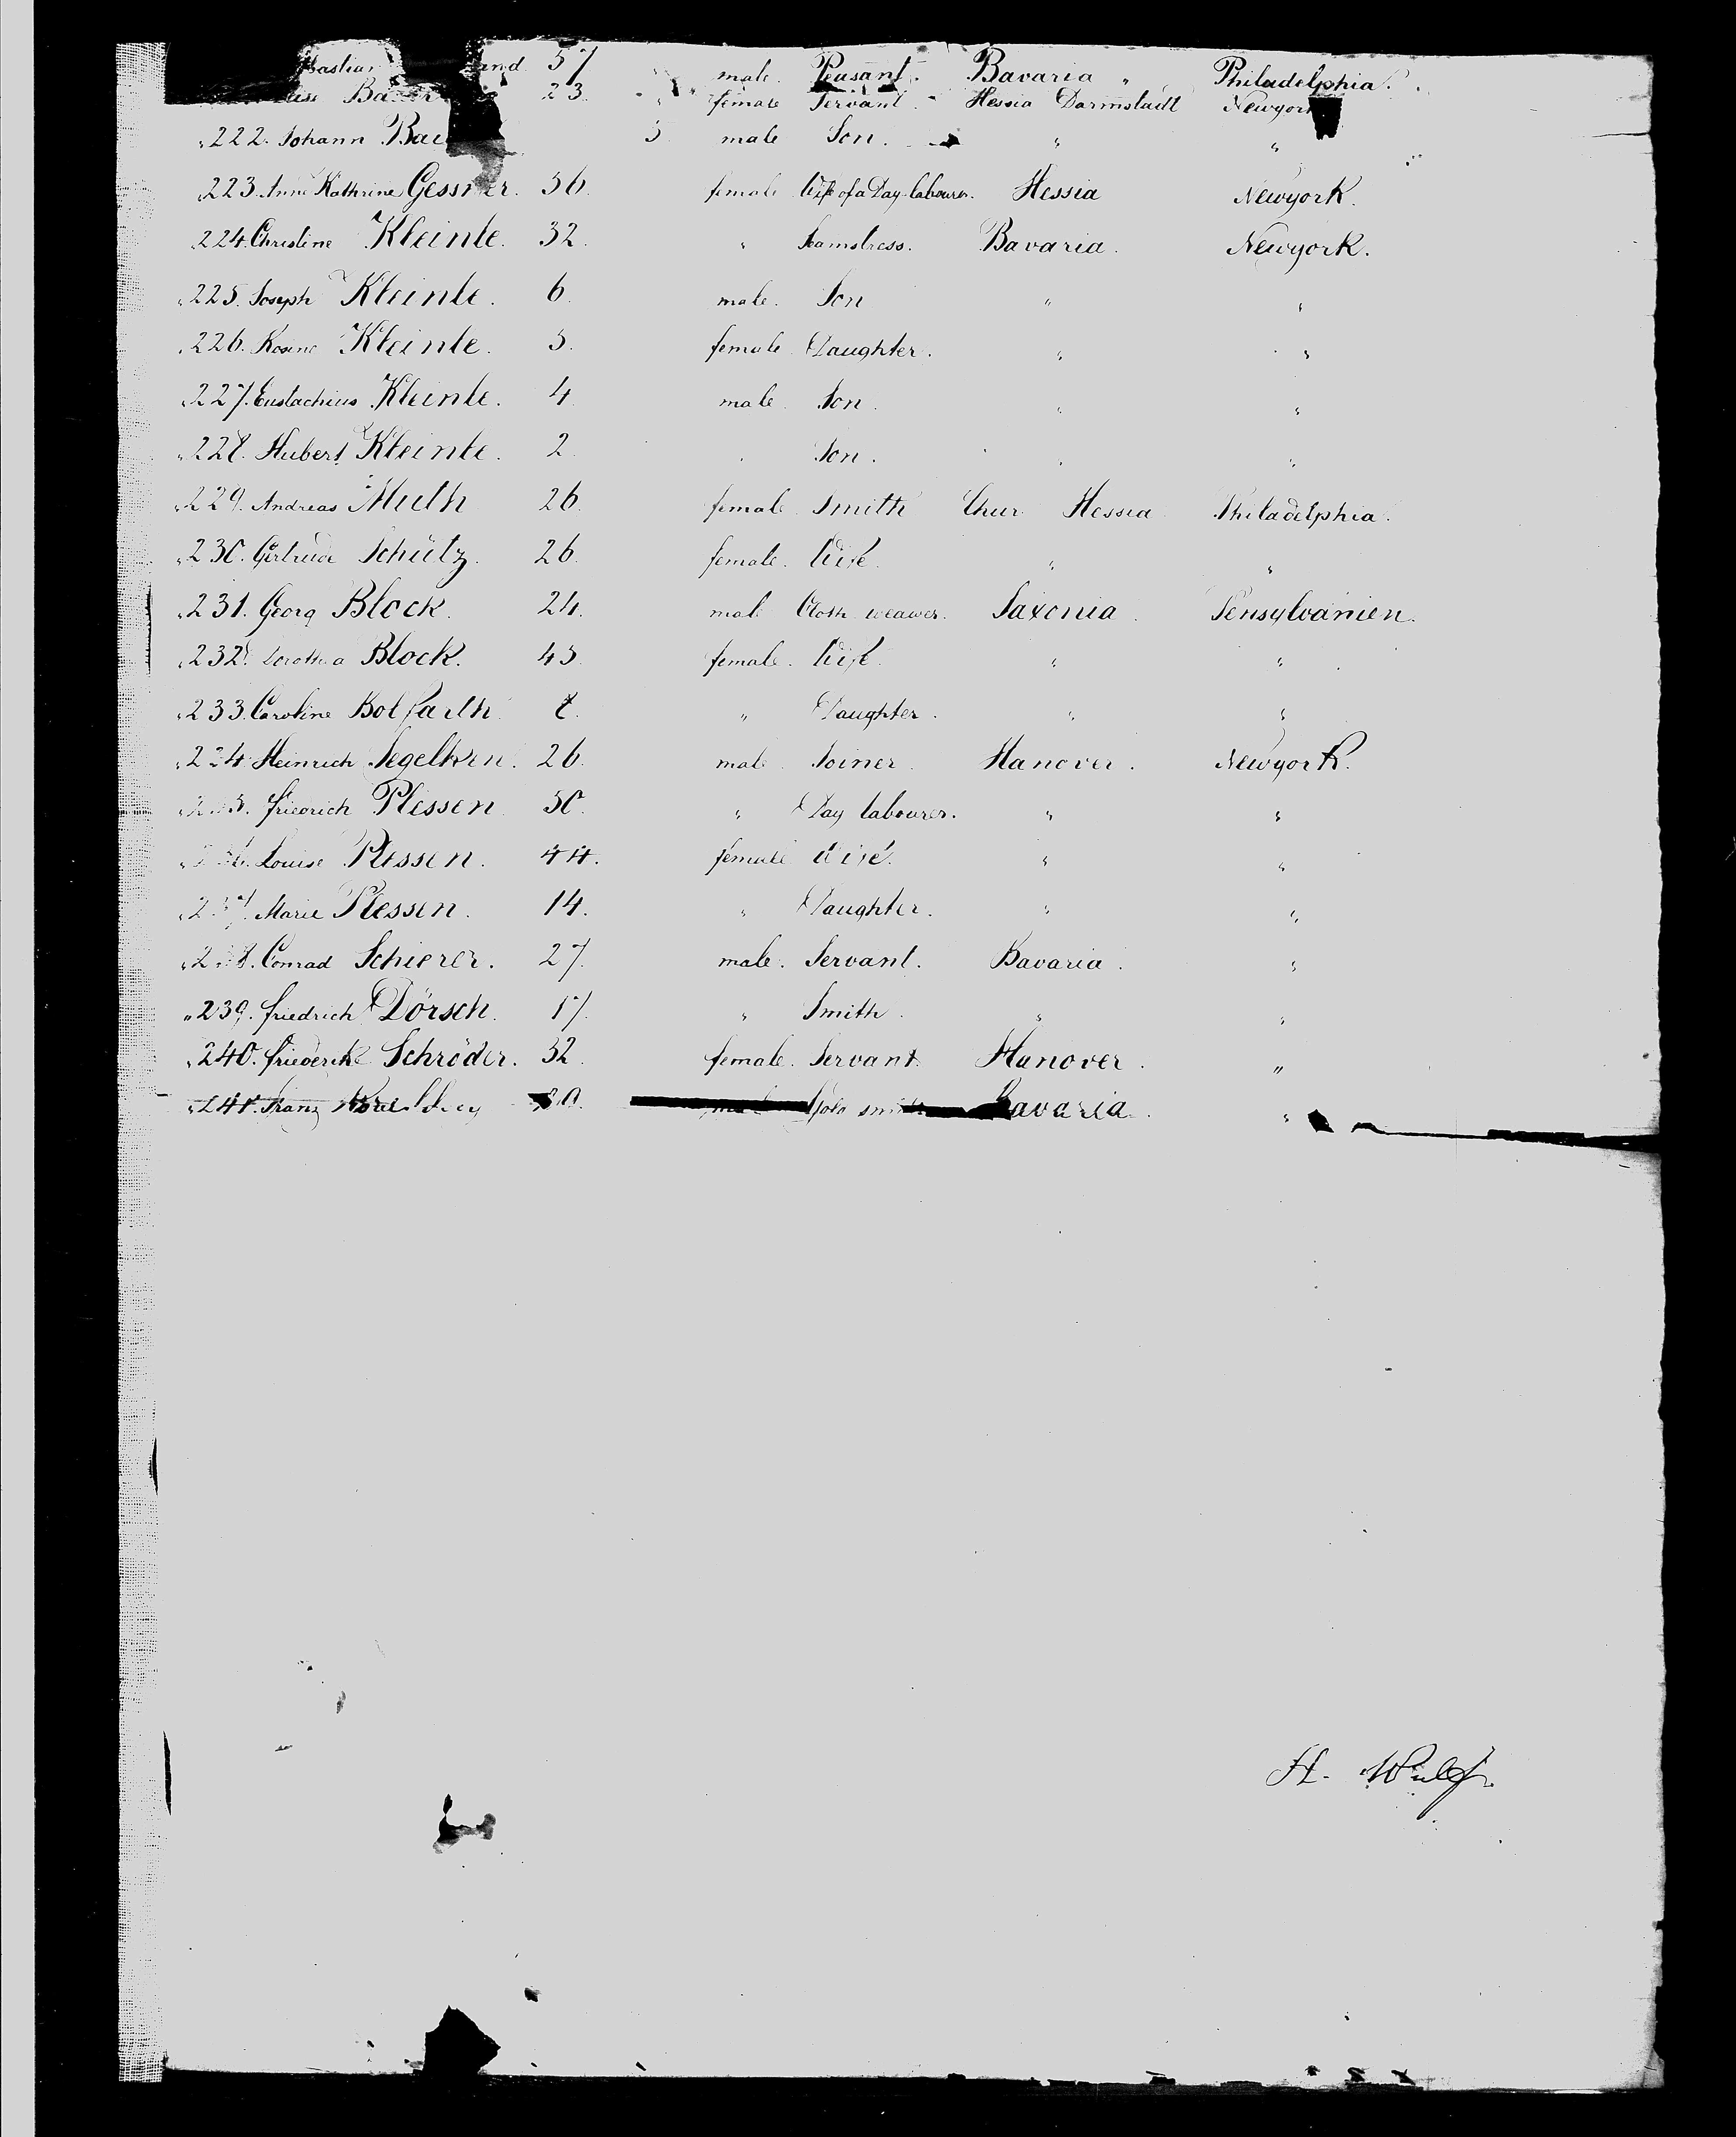 57 male. Peasant. Bavaria " Philadelphia.
23. " female Servant. Hessia Darmstadt Newyork
"222. Johann male Son. " "
"223. Anne Kathrine Gessner. 36. female Wife of a Day-labourer. Hessia Newyork.
"224. Christine Kleinle. 32. " Seamstress. Bavaria. Newyork.
"225. Joseph Kleinle. 6. male. Son " "
"226. Rosine Kleinle. 5. female Daughter. " "
"227. Eustachius Kleinle. 4 male. Son. " "
"228. Hubert Kleinle. 2. " Son. " "
"229. Andreas Muth 26. female Smith Chur Hessia Philadelphia.
"230. Gertrude Schütz. 26. female. Wife. " "
"231. Georg Block. 24. male Cloth weawer. Saxonia. Pensylvanien.
"232. Dorothea Block. 45. female. Wife. " "
"233. Caroline " Daughter. " "
"234. Heinrich Segelken. 26. male. Joiner. Hanover. Newyork.
Friedrich Plessen 50. " Day labourer. " "
Louise Plessen. 44. female Wife. " "
"237. Marie Plessen. 14. " Daughter. " "
"238. Conrad Schierer. 27. male. Servant. Bavaria. "
"239. Friedrich Dörsch. 17. " Smith. " "
"240. Friederike Schröder. 32. female. Servant. Hanover. "
"241. Franz Gold smith Bavaria. "
H. Wulf.